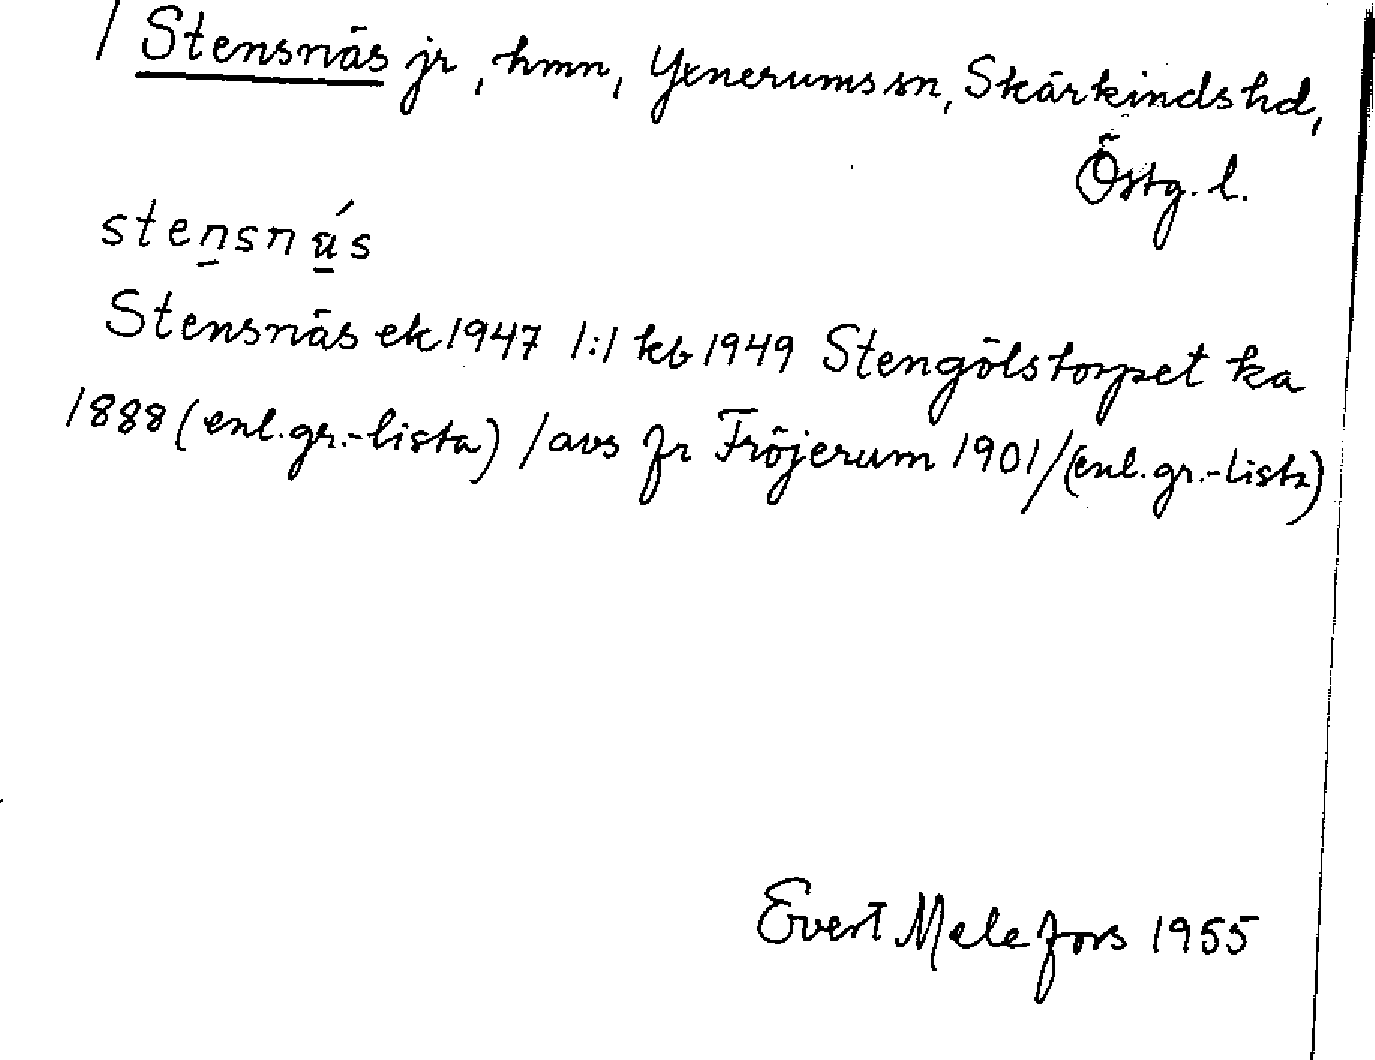 / Stensnäs jr, hmn, Yxnerums sn, Skärkinds hd,
Östg. l.
stensnä́s
Stensnäs ek 1947 1:1 kb 1949 Stengölstorpet ka
1888 (enl. gr.-lista) /avs fr Fröjerum 1901/ (enl. gr.-lista)
Evert Melefors 1955